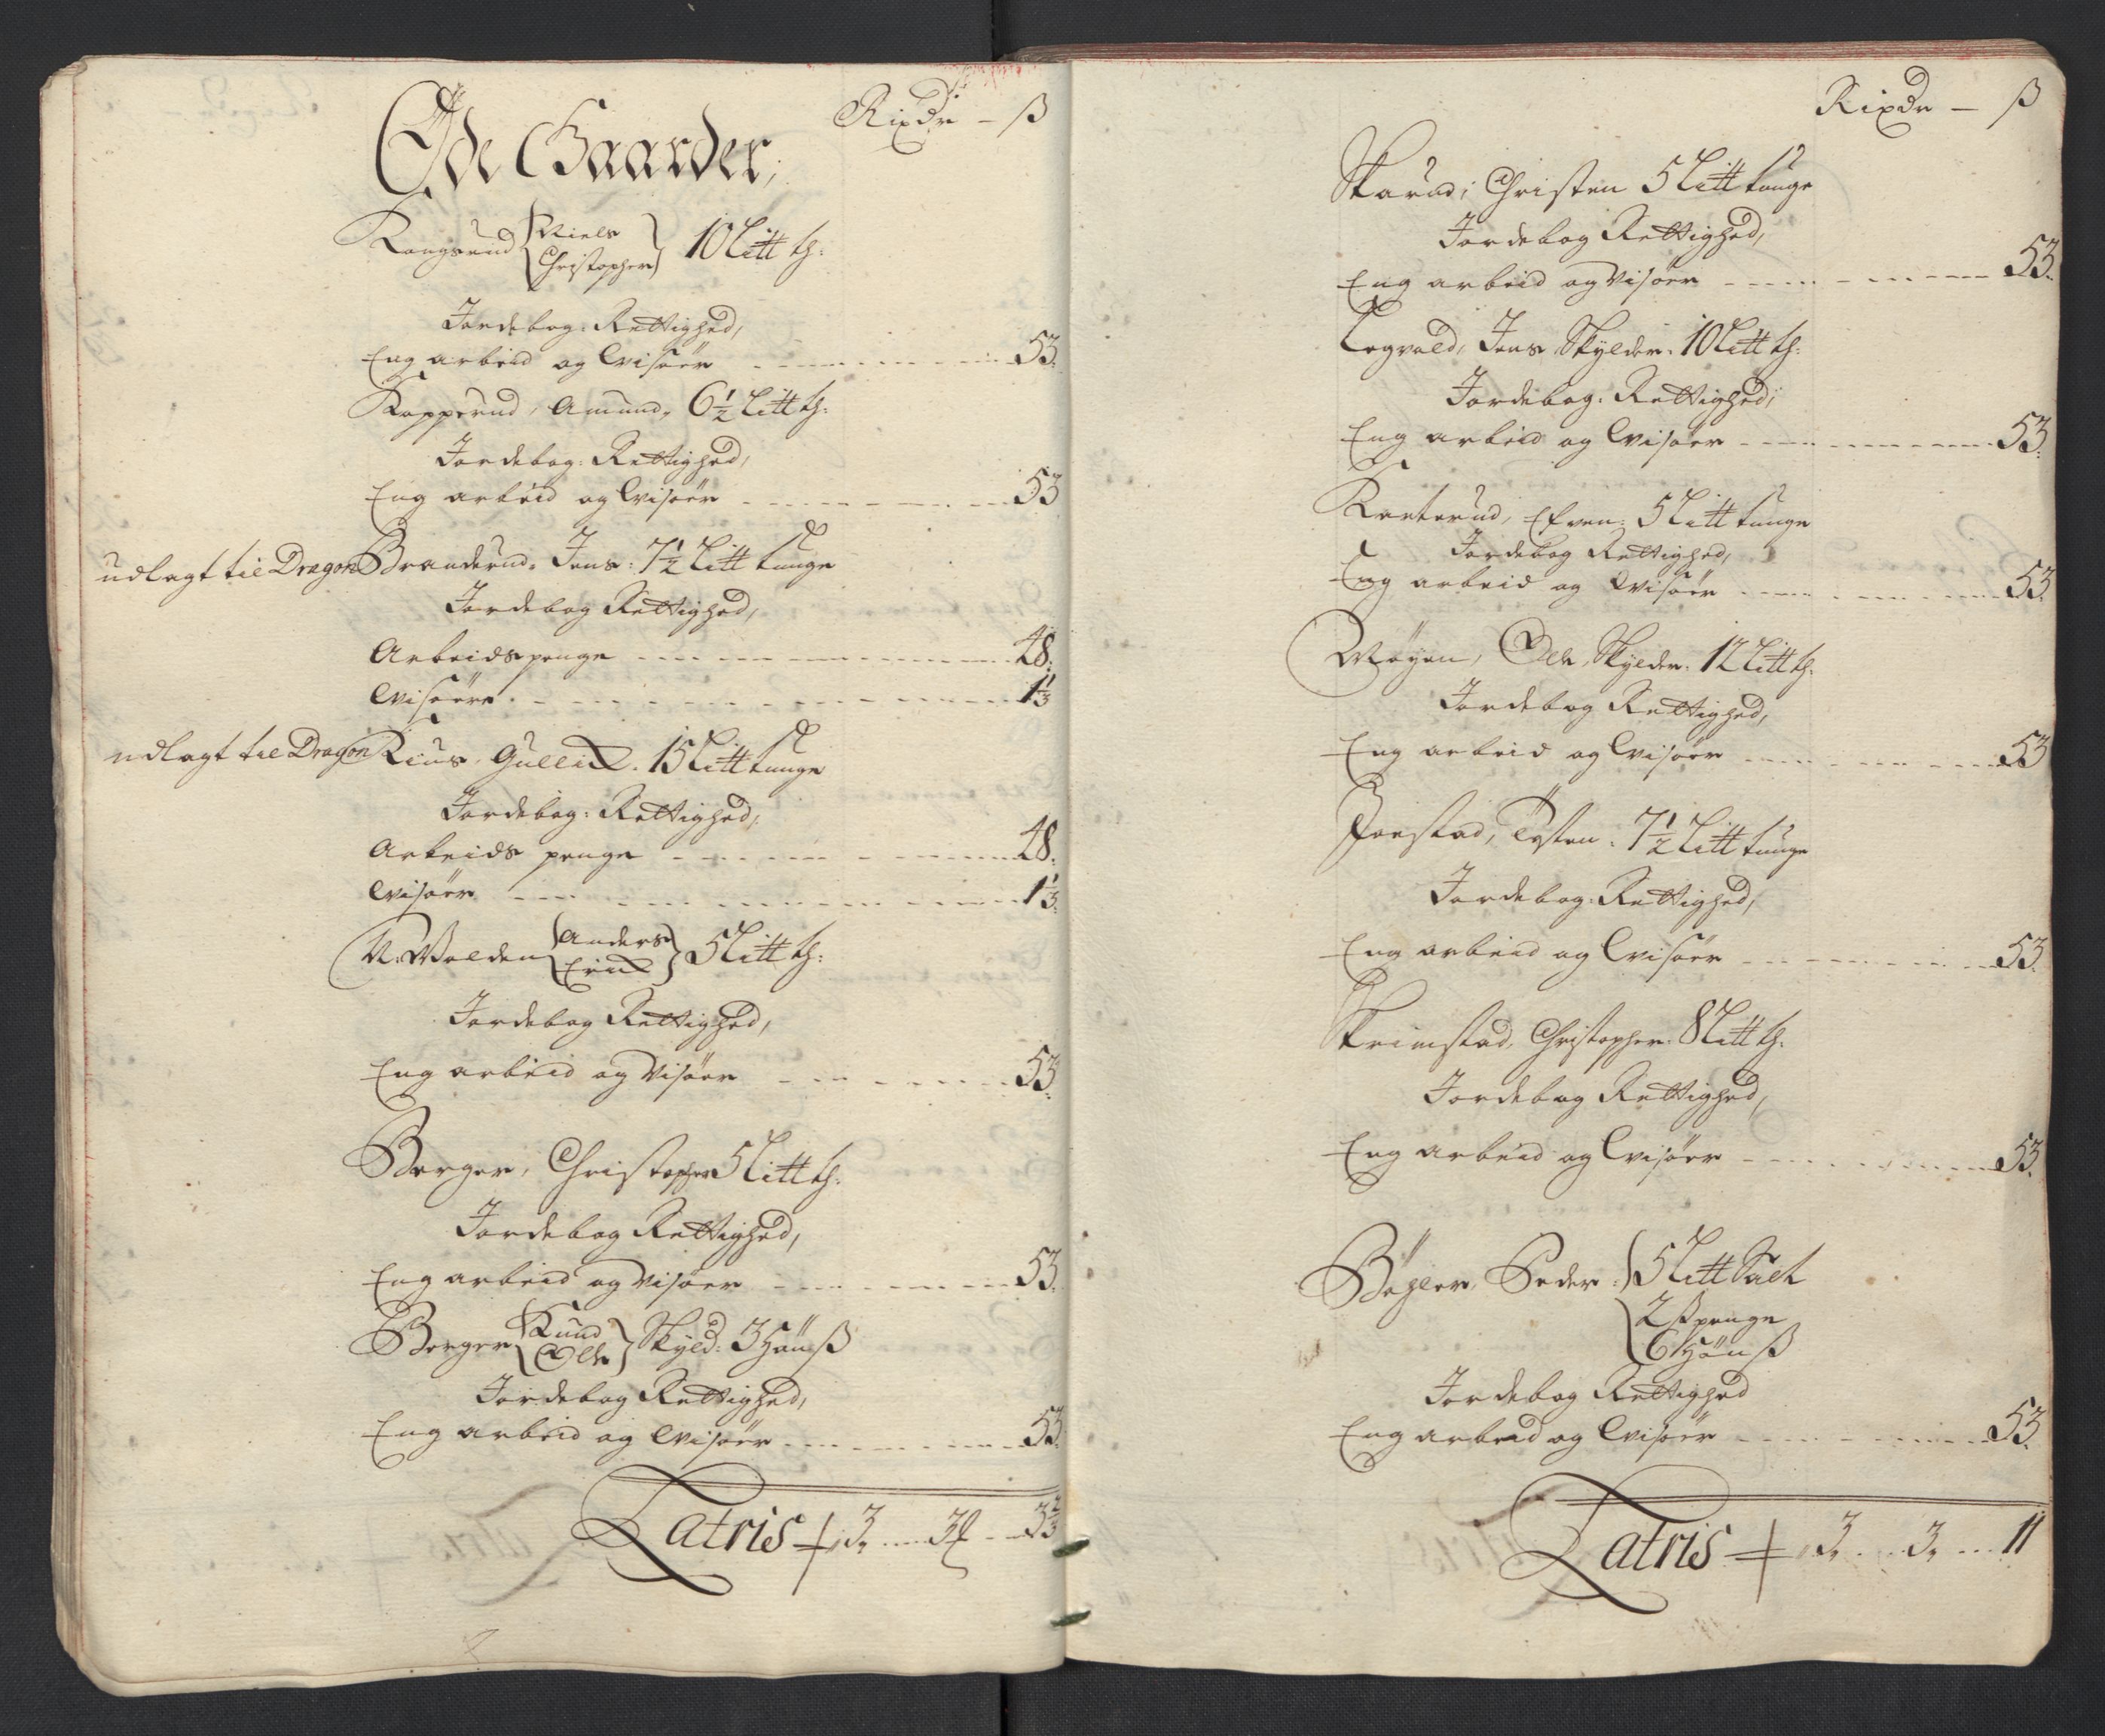 Rixdr – ß
Öde Gaarder,
Kongsrud { Niels Christopher } 10 Litt th:
Jordebog: Rettighed,
Eng arbeid og Wisöer 53.
Kopperud, Amund, 6 1/2 Litt th:
Jordebog: Rettighed,
Eng arbeid og Wisöer 53
udlagt til Dragon Branderud, Jens: 7 1/2 Litt tunge
Jordebog Rettighed,
Arbeidspenge 48.
Wisöere 1 1/3
udlagt til Dragon Rius, Gullich. 15 Litt tunge
Jordebog: Rettighed,
Arbeids penge 48.
Wisöer 1 1/3.
N. Wolden { Anders Erich } 5 Litt th:
Jordebog Rettighed,
Eng arbeid og Wisöer 53.
Berger, Christopher 5 Litt th:
Jordebog Rettighed,
Eng arbeid og Wisöer 53.
Berger { Knud Ole } Skyld: 3 Hön ß
Jordebog Rettighed,
Eng arbeid og Wisöer 53.
Latris 3 3 2/3
Rixdr – ß
Skarud, Christen 5 Litt tunge
Jordebog Rettighed,
Eng arbeid og Wisöer 53.
Logvold, Jens Skylder. 10 Litt th:
Jordebog: Rettighed,
Eng arbeid og Wisöer 53.
Korterud, Efven: 5 Litt tunge
Jordebog Rettighed,
Eng arbeid og Wisöer 53.
Møyen, Ole, Skylder. 12 Litt th:
Jordebog Rettighed,
Eng arbeid og Wisöer 53
Joestad, Östen: 7 1/2 Litt tunge
Jordebog: Rettighed,
Eng arbeid og Wisöer 53.
Skrimstad, Christopher: 8 Litt th:
Jordebog Rettighed,
Eng arbeid og Wisöer 53.
Bøhler, Peder: { 5 Litt Salt
2 ß penge
6 Hön ß
Jordebog Rettighed
Eng arbeid og Wisöer 53.
Latris 3 3 11